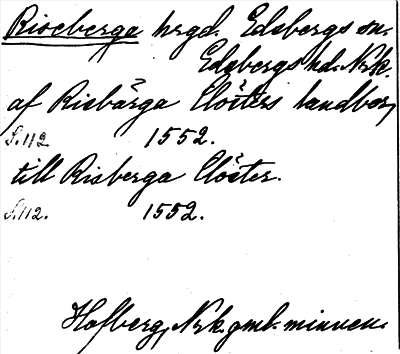 Riseberga hrgd. Edsbergs sn.
Edsbergs hd. Nrk.
af Risbärga Clösters landbor,
S. 112 1552.
till Risberga Clöster.
S. 112. 1552.
Hofberg, Nrk. gml. minnen.